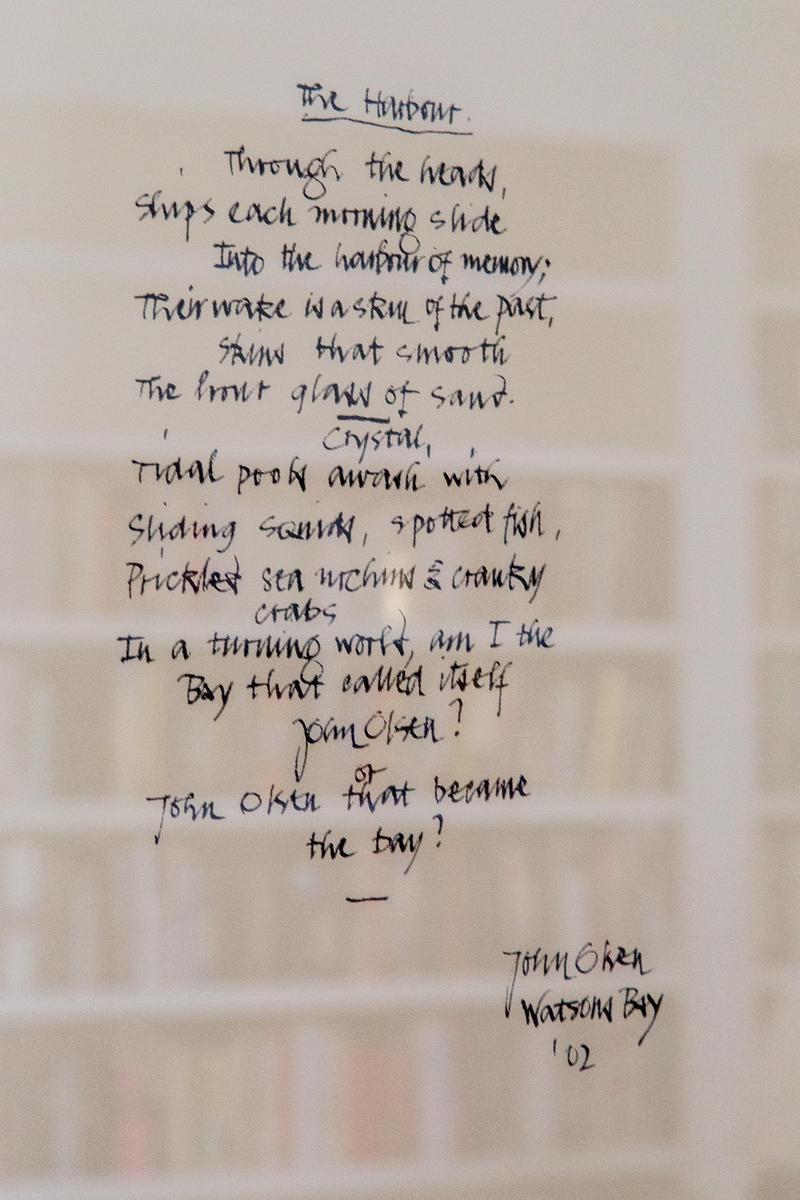 The Harbour.
Through the heads,
Ships each morning slide
Into the harbour of memory;
Their wake is a skin of the past,
Skins that smooth
The front glass of sand.
Crystal,
Tidal pools awash with
Sliding squids, spotted fish,
Prickled sea urchins & cranky
crabs
In a turning world, am I the
Bay that called itself
John Olsen?
or
John Olsen that became
the bay?
John Olsen
Watsons Bay
'02